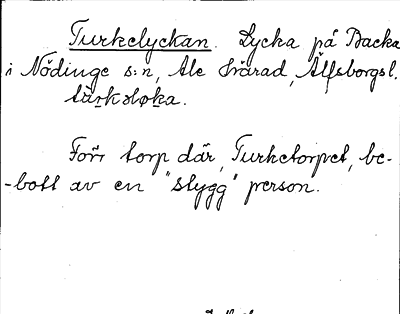 Turkelyckan. Lycka på Backa
i Nödinge s:n, Ale härad, Älfsborgsl.
Förr torp där, Turketorpet, be-
-bott av en "stygg" person.